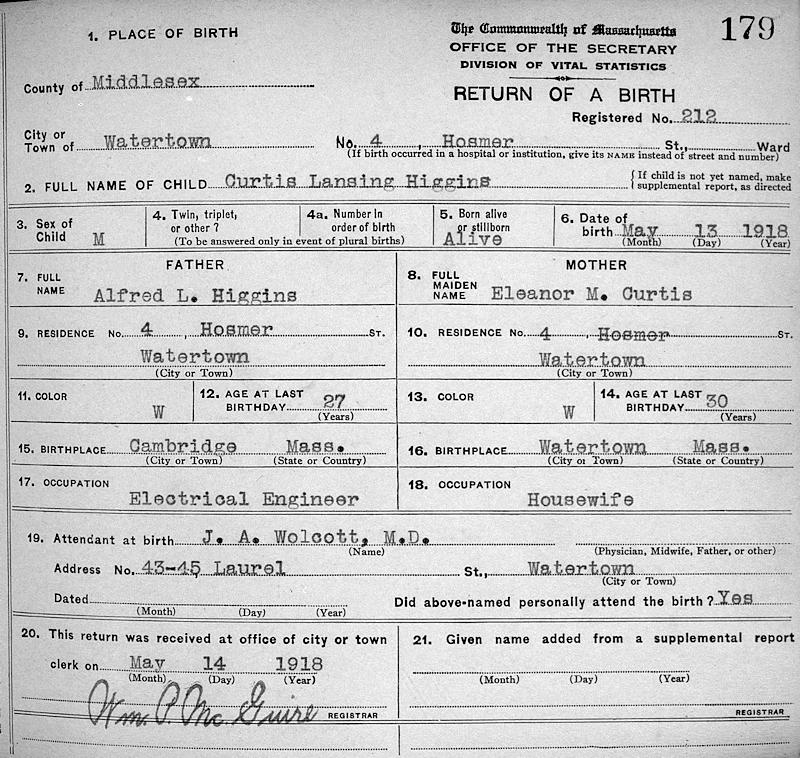 179
The Commonwealth of Massachusetts
OFFICE OF THE SECRETARY
DIVISION OF VITAL STATISTICS
RETURN OF A BIRTH
Registered No. 212
1. PLACE OF BIRTH
County of Middlesex
City or Town of Watertown No. 4, Hosmer St., Ward
(If birth occurred in a hospital or institution, give its NAME instead of street and number)
2. FULL NAME OF CHILD Curtis Lansing Higgins {If child is not yet named, make
supplemental report, as directed
3. Sex of Child M
4. Twin, triplet, or other?
4a. Number in order of birth
(To be answered only in event of plural births)
5. Born alive or stillborn Alive
6. Date of birth May 13 1918
(Month) (Day) (Year)
FATHER
7. FULL NAME Alfred L. Higgins
MOTHER
8. FULL MAIDEN NAME Eleanor M. Curtis
9. RESIDENCE No. 4, Hosmer ST.
Watertown
(City or Town)
10. RESIDENCE No. 4, Hosmer ST.
Watertown
(City or Town)
11. COLOR W
12. AGE AT LAST BIRTHDAY 27
(Years)
13. COLOR W
14. AGE AT LAST BIRTHDAY 30
(Years)
15. BIRTHPLACE Cambridge Mass.
(City or Town) (State or Country)
16. BIRTHPLACE Watertown Mass.
(City or Town) (State or Country)
17. OCCUPATION
Electrical Engineer
18. OCCUPATION
Housewife
19. Attendant at birth J. A. Wolcott, M.D.
(Name) (Physician, Midwife, Father, or other)
Address No. 43-45 Laurel St., Watertown
(City or Town)
Dated Did above-named personally attend the birth? Yes
(Month) (Day) (Year)
20. This return was received at office of city or town
clerk on May 14 1918
(Month) (Day) (Year)
Wm. P. McGuire REGISTRAR
21. Given name added from a supplemental report
(Month) (Day) (Year)
REGISTRAR